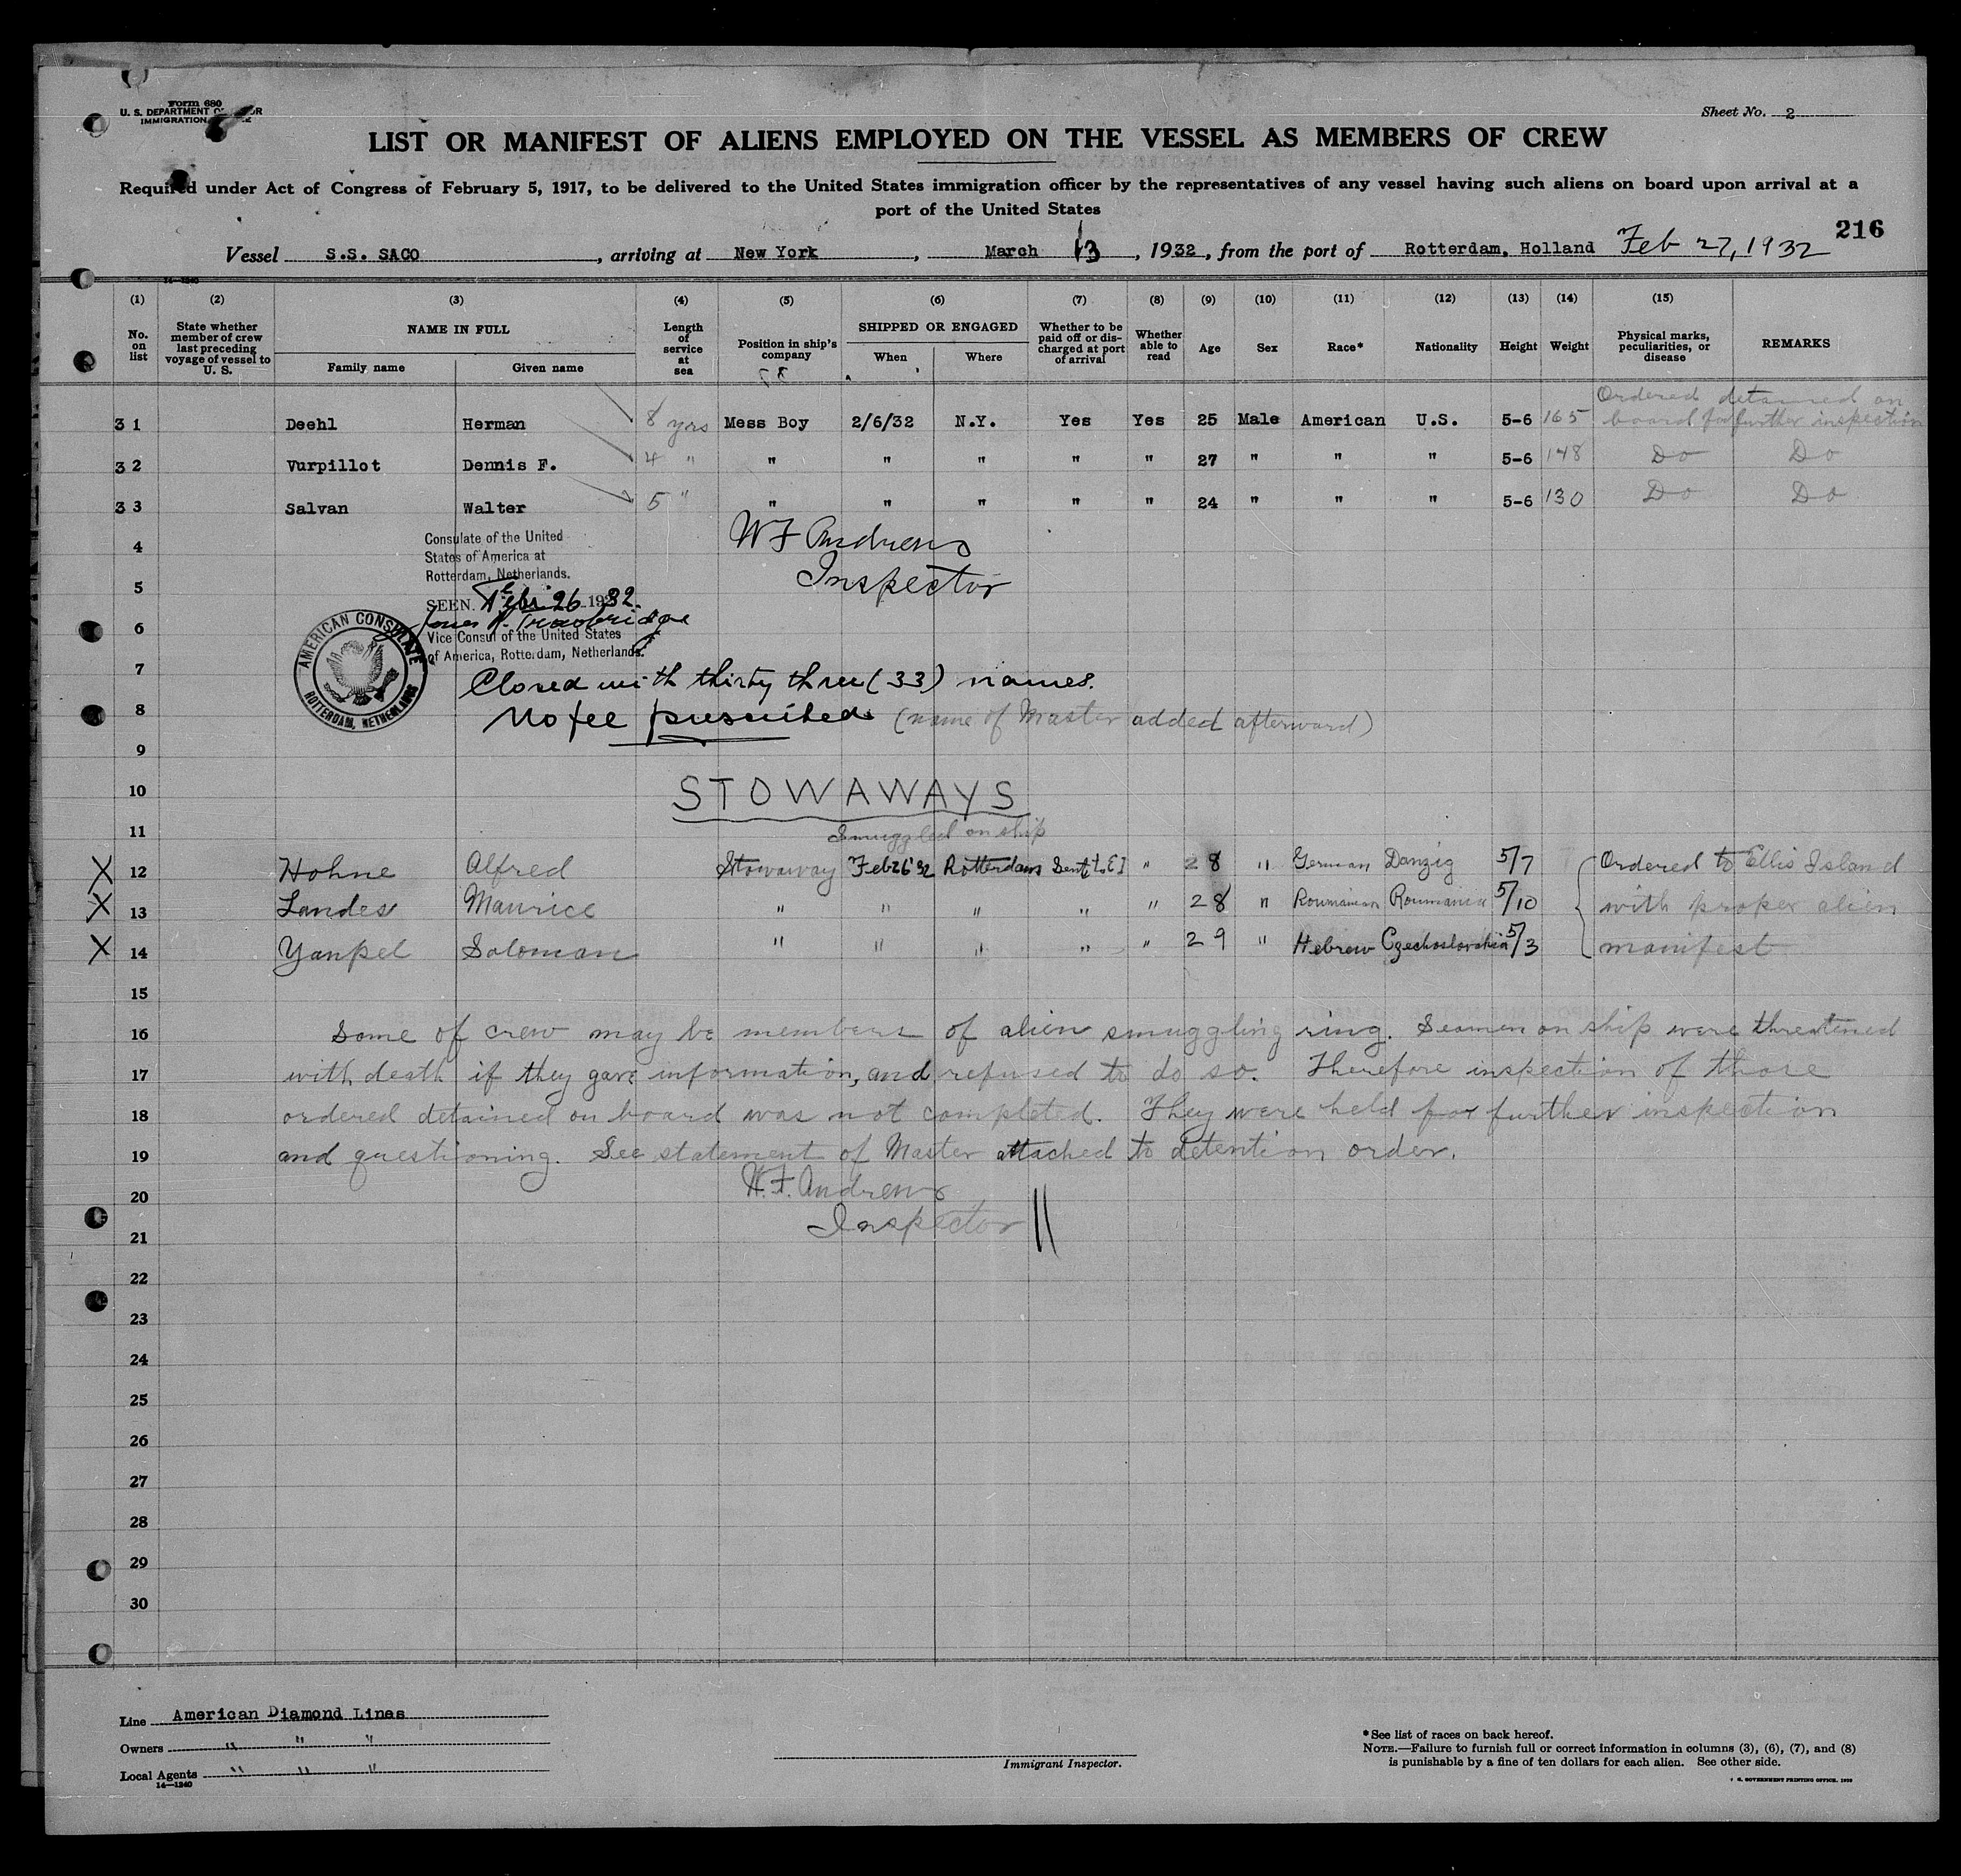 Form 680
U. S. DEPARTMENT OF LABOR
IMMIGRATION
Sheet No. 2
LIST OR MANIFEST OF ALIENS EMPLOYED ON THE VESSEL AS MEMBERS OF CREW
Required under Act of Congress of February 5, 1917, to be delivered to the United States immigration officer by the representatives of any vessel having such aliens on board upon arrival at a
port of the United States
216
Vessel S.S. SACO, arriving at New York, March 13, 1932, from the port of Rotterdam, Holland Feb 27, 1932
14—1240
(1) (2) (3) (4) (5) (6) (7) (8) (9) (10) (11) (12) (13) (14) (15)
No. on list State whether member of crew last preceding voyage of vessel to U. S. NAME IN FULL Family name Given name Length of service at sea Position in ship's company SHIPPED OR ENGAGED When Where Whether to be paid off or discharged at port of arrival Whether able to read Age Sex Race* Nationality Height Weight Physical marks, peculiarities, or disease REMARKS
Ordered detained on
31 Deehl Herman 8 yrs Mess Boy 2/6/32 N.Y. Yes Yes 25 Male American U.S. 5-6 165 board for further inspection
32 Vurpillot Dennis F. 4 " " " " " " 27 " " " 5-6 148 Do Do
33 Salvan Walter 5 " " " " " " 24 " " " 5-6 130 Do Do
Consulate of the United
States of America at
Rotterdam, Netherlands.
SEEN. Feb. 26 1932.
Trowbridge
Vice Consul of the United States
of America, Rotterdam, Netherlands.
AMERICAN CONSULATE
ROTTERDAM, NETHERLANDS
W F Andrews
Inspector
4
5
6
7 Closed with thirty three (33) names.
8 No fee prescribed. (name of Master added afterward)
9
10 STOWAWAYS
11 Smuggled on ship
X 12 Hohne Alfred Stowaway Feb 26 '32 Rotterdam Sent to E I " 28 " German Danzig 5/7 Ordered to Ellis Island
X 13 Landes Maurice " " " " " 28 " Roumanian Roumania 5/10 with proper alien
X 14 Yanpel Soloman " " " " " 29 " Hebrew Czechoslovakia 5/3 manifest
15
16 Some of crew may be members of alien smuggling ring. Seamen on ship were threatened
17 with death if they gave information, and refused to do so. Therefore inspection of those
18 ordered detained on board was not completed. They were held for further inspection
19 and questioning. See statement of Master attached to detention order.
20 W.F. Andrews
21 Inspector
22
23
24
25
26
27
28
29
30
Line American Diamond Lines
Owners " " "
Local Agents " " "
14—1240
Immigrant Inspector.
* See list of races on back hereof.
NOTE.—Failure to furnish full or correct information in columns (3), (6), (7), and (8)
is punishable by a fine of ten dollars for each alien. See other side.
U. S. GOVERNMENT PRINTING OFFICE: 1930